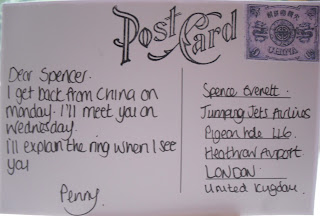 Post Card
Dear Spencer.
I get back from China on
monday. I'll meet you on
Wednesday.
i'll explain the ring when I see
you
Penny.
Spence Everett.
Jumping Jets Airlines
Pigeon hole 46.
Heathrow Airport
LONDON
United Kingdom.